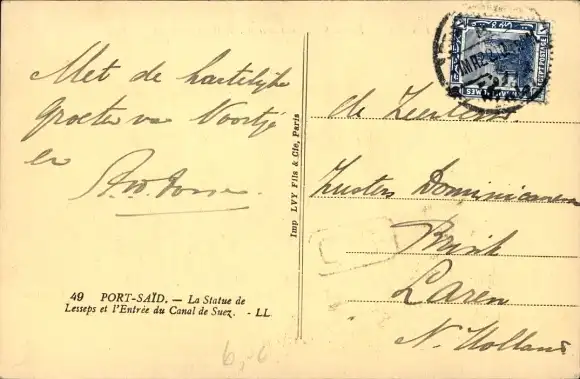 Met de hartelijke
groeten van Noortje
en
49 PORT-SAÏD. — La Statue de
Lesseps et l'Entrée du Canal de Suez. - LL
Imp LVY Fils & Cie, Paris
EGYPT POSTAGE
de
Zusters Dominicanen
Laren
N. Holland
6,-